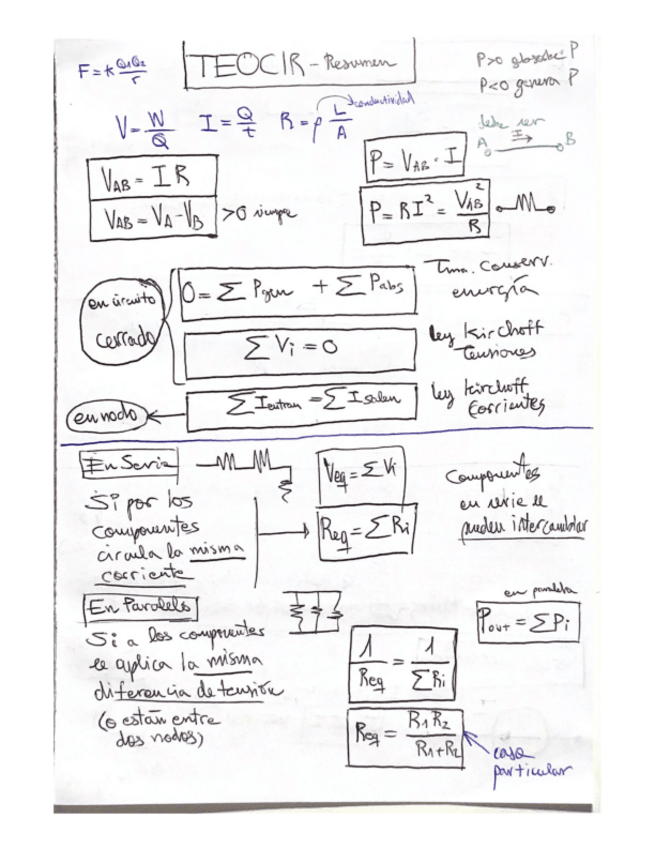 F = k Q1Q2/r
TEOCIR - Resumen
P>0 absorbe P
P<0 genera P
V = W/Q   I = Q/t   R = ρ L/A
conductividad
debe ser
A I B
VAB = I R
VAB = VA - VB >0 siempre
P = VAB · I
P = RI² = VAB²/R
en circuito
cerrado
0 = Σ Pgen + Σ Pabs
Tma. Conserv.
energía
Σ Vi = 0
ley Kirchoff
Tensiones
en nodo
Σ Ientran = Σ Isalen
ley Kirchoff
Corrientes
En Serie
Si por los
componentes
circula la misma
corriente
Veq = Σ Vi
Req = Σ Ri
Componentes
en serie se
pueden intercambiar
En Paralelo
Si a los componentes
se aplica la misma
diferencia de tensión
(o están entre
dos nodos)
1/Req = 1/ΣRi
Req = R1R2/R1+R2
caso
particular
en paralelo
Pout = ΣPi